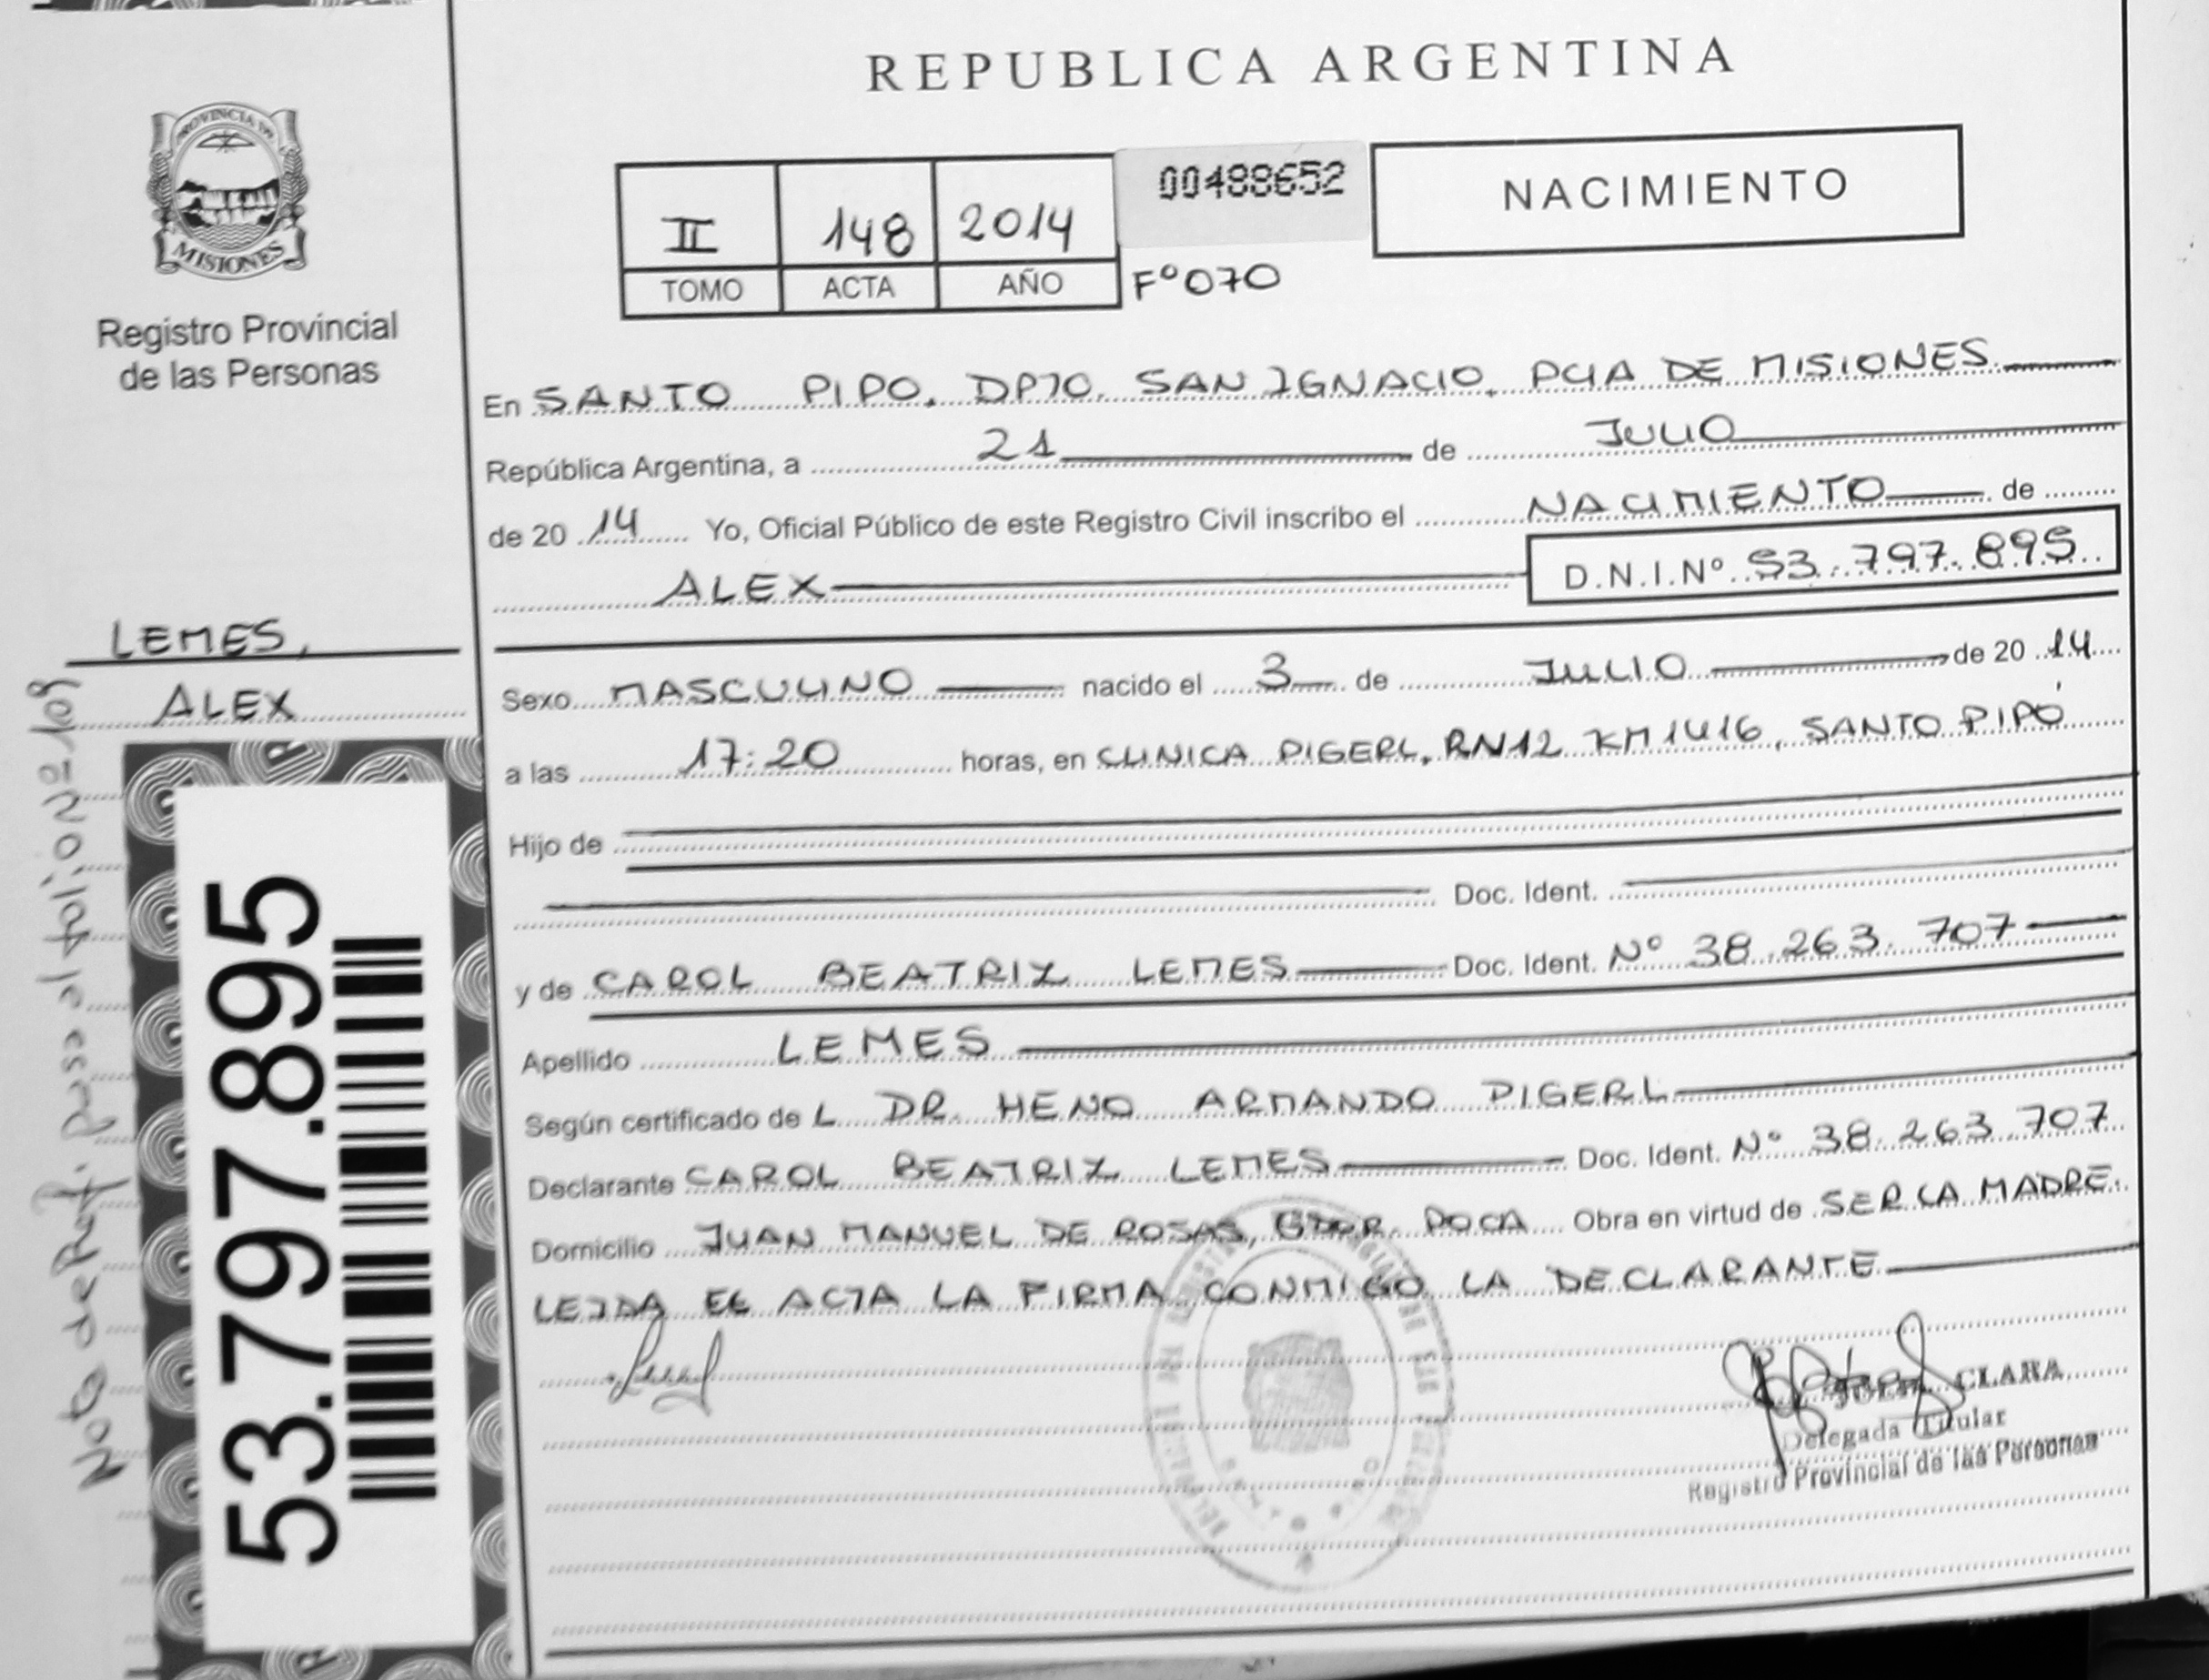 REPUBLICA ARGENTINA
PROVINCIA DE
MISIONES
Registro Provincial
de las Personas
II 148 2014 00488652 NACIMIENTO
TOMO ACTA AÑO Fº070
En SANTO PIPO. DPTO. SAN IGNACIO. PCIA DE MISIONES
República Argentina, a 21 de JULIO
de 20 14 Yo, Oficial Público de este Registro Civil inscribo el NACIMIENTO de
ALEX D.N.I.Nº 53.797.895
LEMES,
ALEX
Sexo MASCULINO nacido el 3 de JULIO de 20 14
a las 17:20 horas, en CLINICA PIGERL, RN12 KM1416, SANTO PIPÓ
Hijo de
Doc. Ident.
y de CAROL BEATRIZ LEMES Doc. Ident. Nº 38.263.707
Apellido LEMES
Según certificado de L DR. HENO ARMANDO PIGERL
Declarante CAROL BEATRIZ LEMES Doc. Ident. Nº 38.263.707
Domicilio JUAN MANUEL DE ROSAS, GDOR. ROCA Obra en virtud de SER LA MADRE.
LEIDA EL ACTA LA FIRMA CONMIGO LA DECLARANTE
CLARA
Delegada Titular
Registro Provincial de las Personas
53.797.895
Nota de Ref. Pasa al folio Nº 109